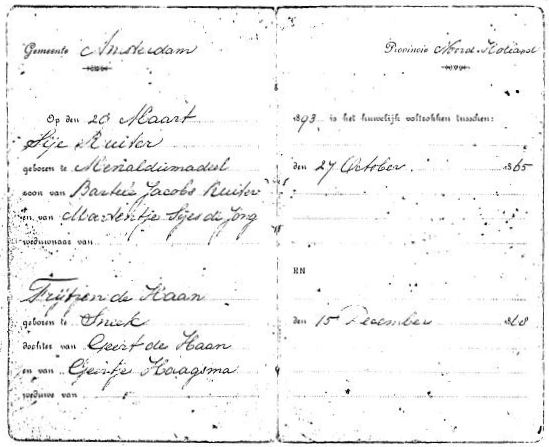 Gemeente Amsterdam Provincie Noord-Holland
Op den 20 Maart 1893 is het huwelijk voltrokken tusschen:
Sije Ruiter
geboren te Menaldumadeel den 27 October 1865
zoon van Bartele Jacobs Ruiter
en van Maatentje Sijes de Jong
weduwnaar van
EN
Frijtjen de Haan
geboren te Sneek den 15 December 1868
dochter van Geert de Haan
en van Geertje Haagsma
weduwe van